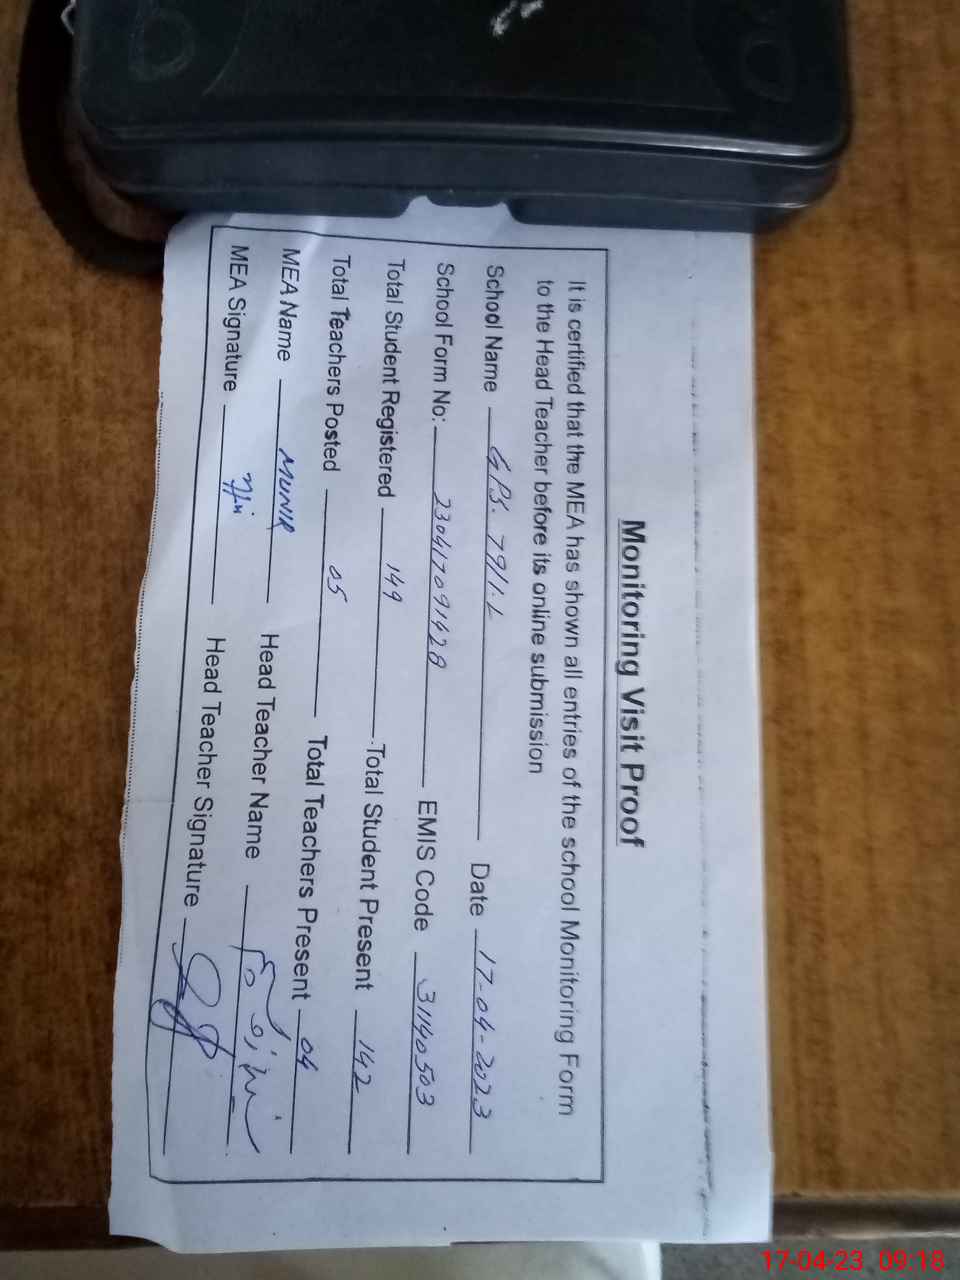 Monitoring Visit Proof
It is certified that the MEA has shown all entries of the school Monitoring Form
to the Head Teacher before its online submission
School Name GPS. 79/1.L Date 17-04-2023
School Form No: 230417091428 EMIS Code 31140503
Total Student Registered 149 Total Student Present 142
Total Teachers Posted 05 Total Teachers Present 04
MEA Name MUNIR Head Teacher Name
MEA Signature Head Teacher Signature
17-04-23 09:18